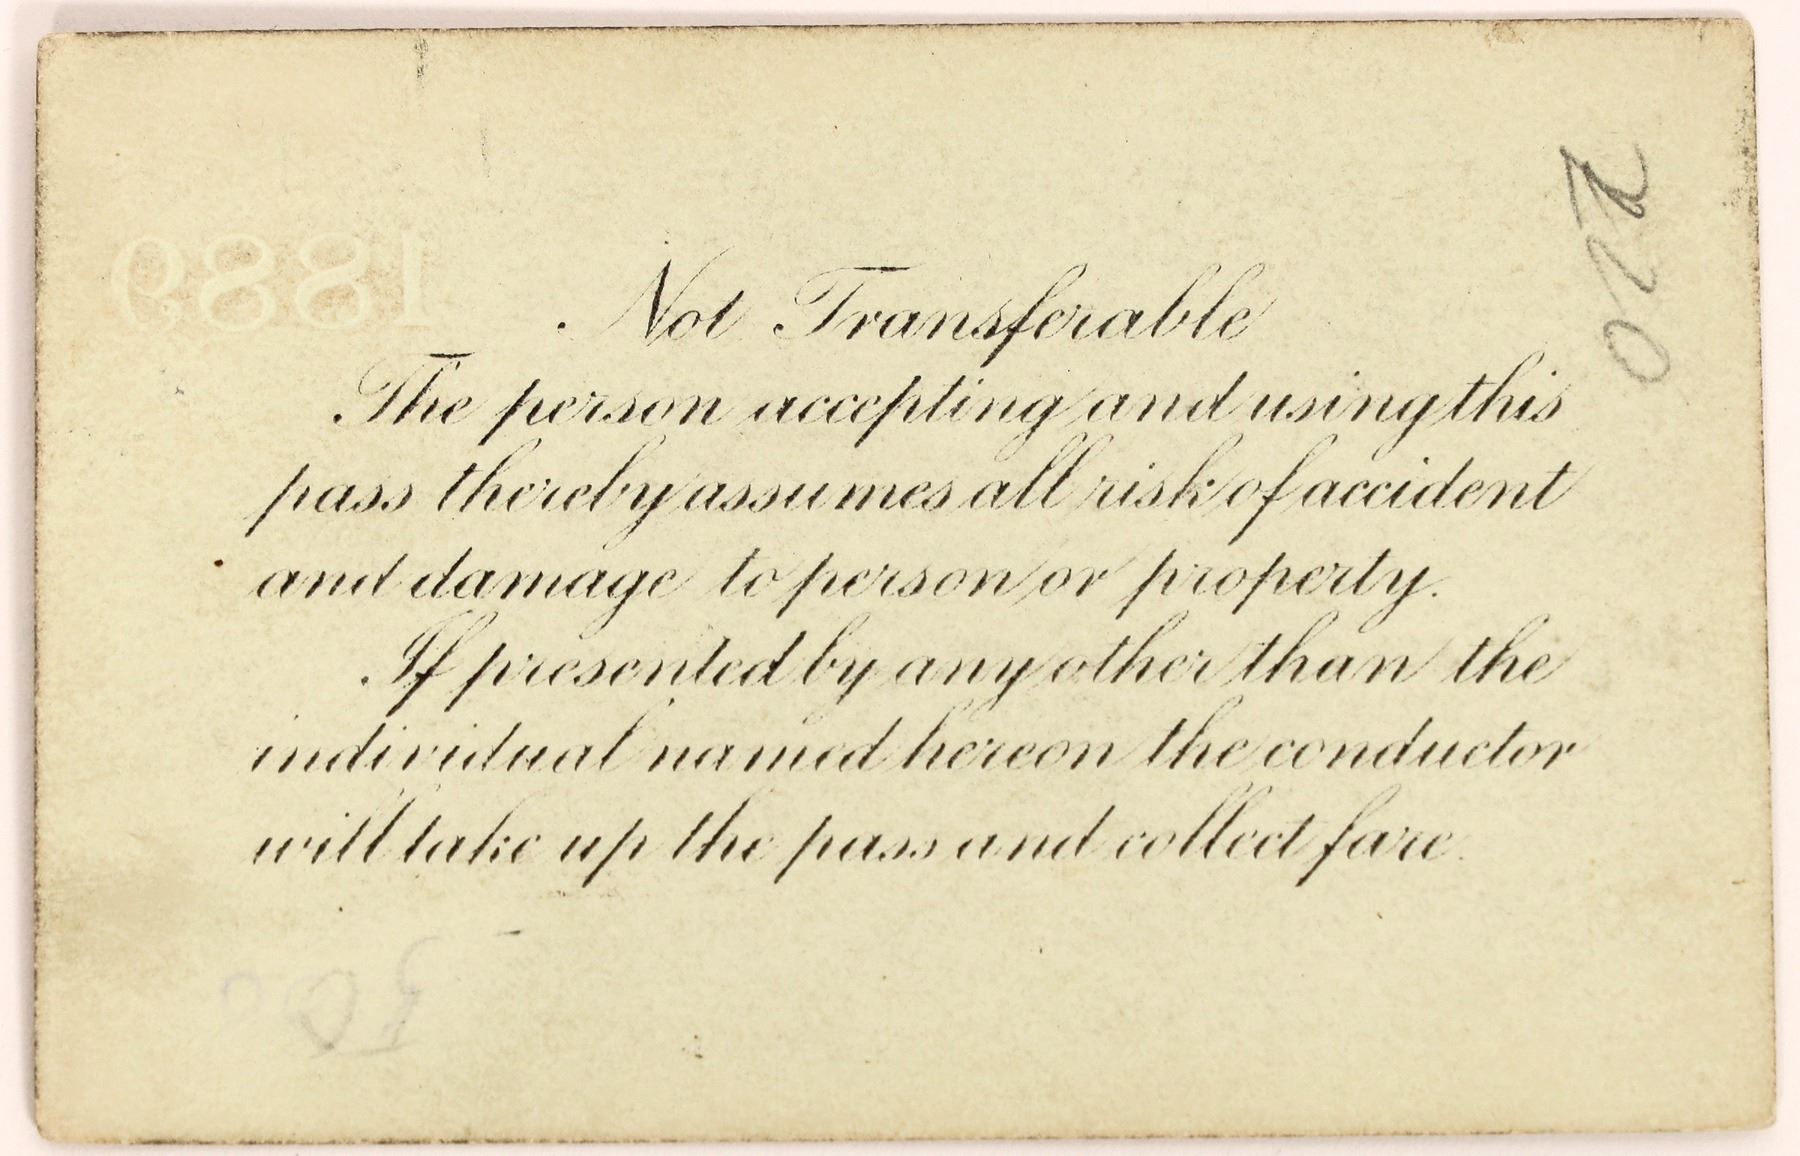 1889
Not Transferable
The person accepting and using this
pass thereby assumes all risk of accident
and damage to person or property.
If presented by any other than the
individual named hereon the conductor
will take up the pass and collect fare.